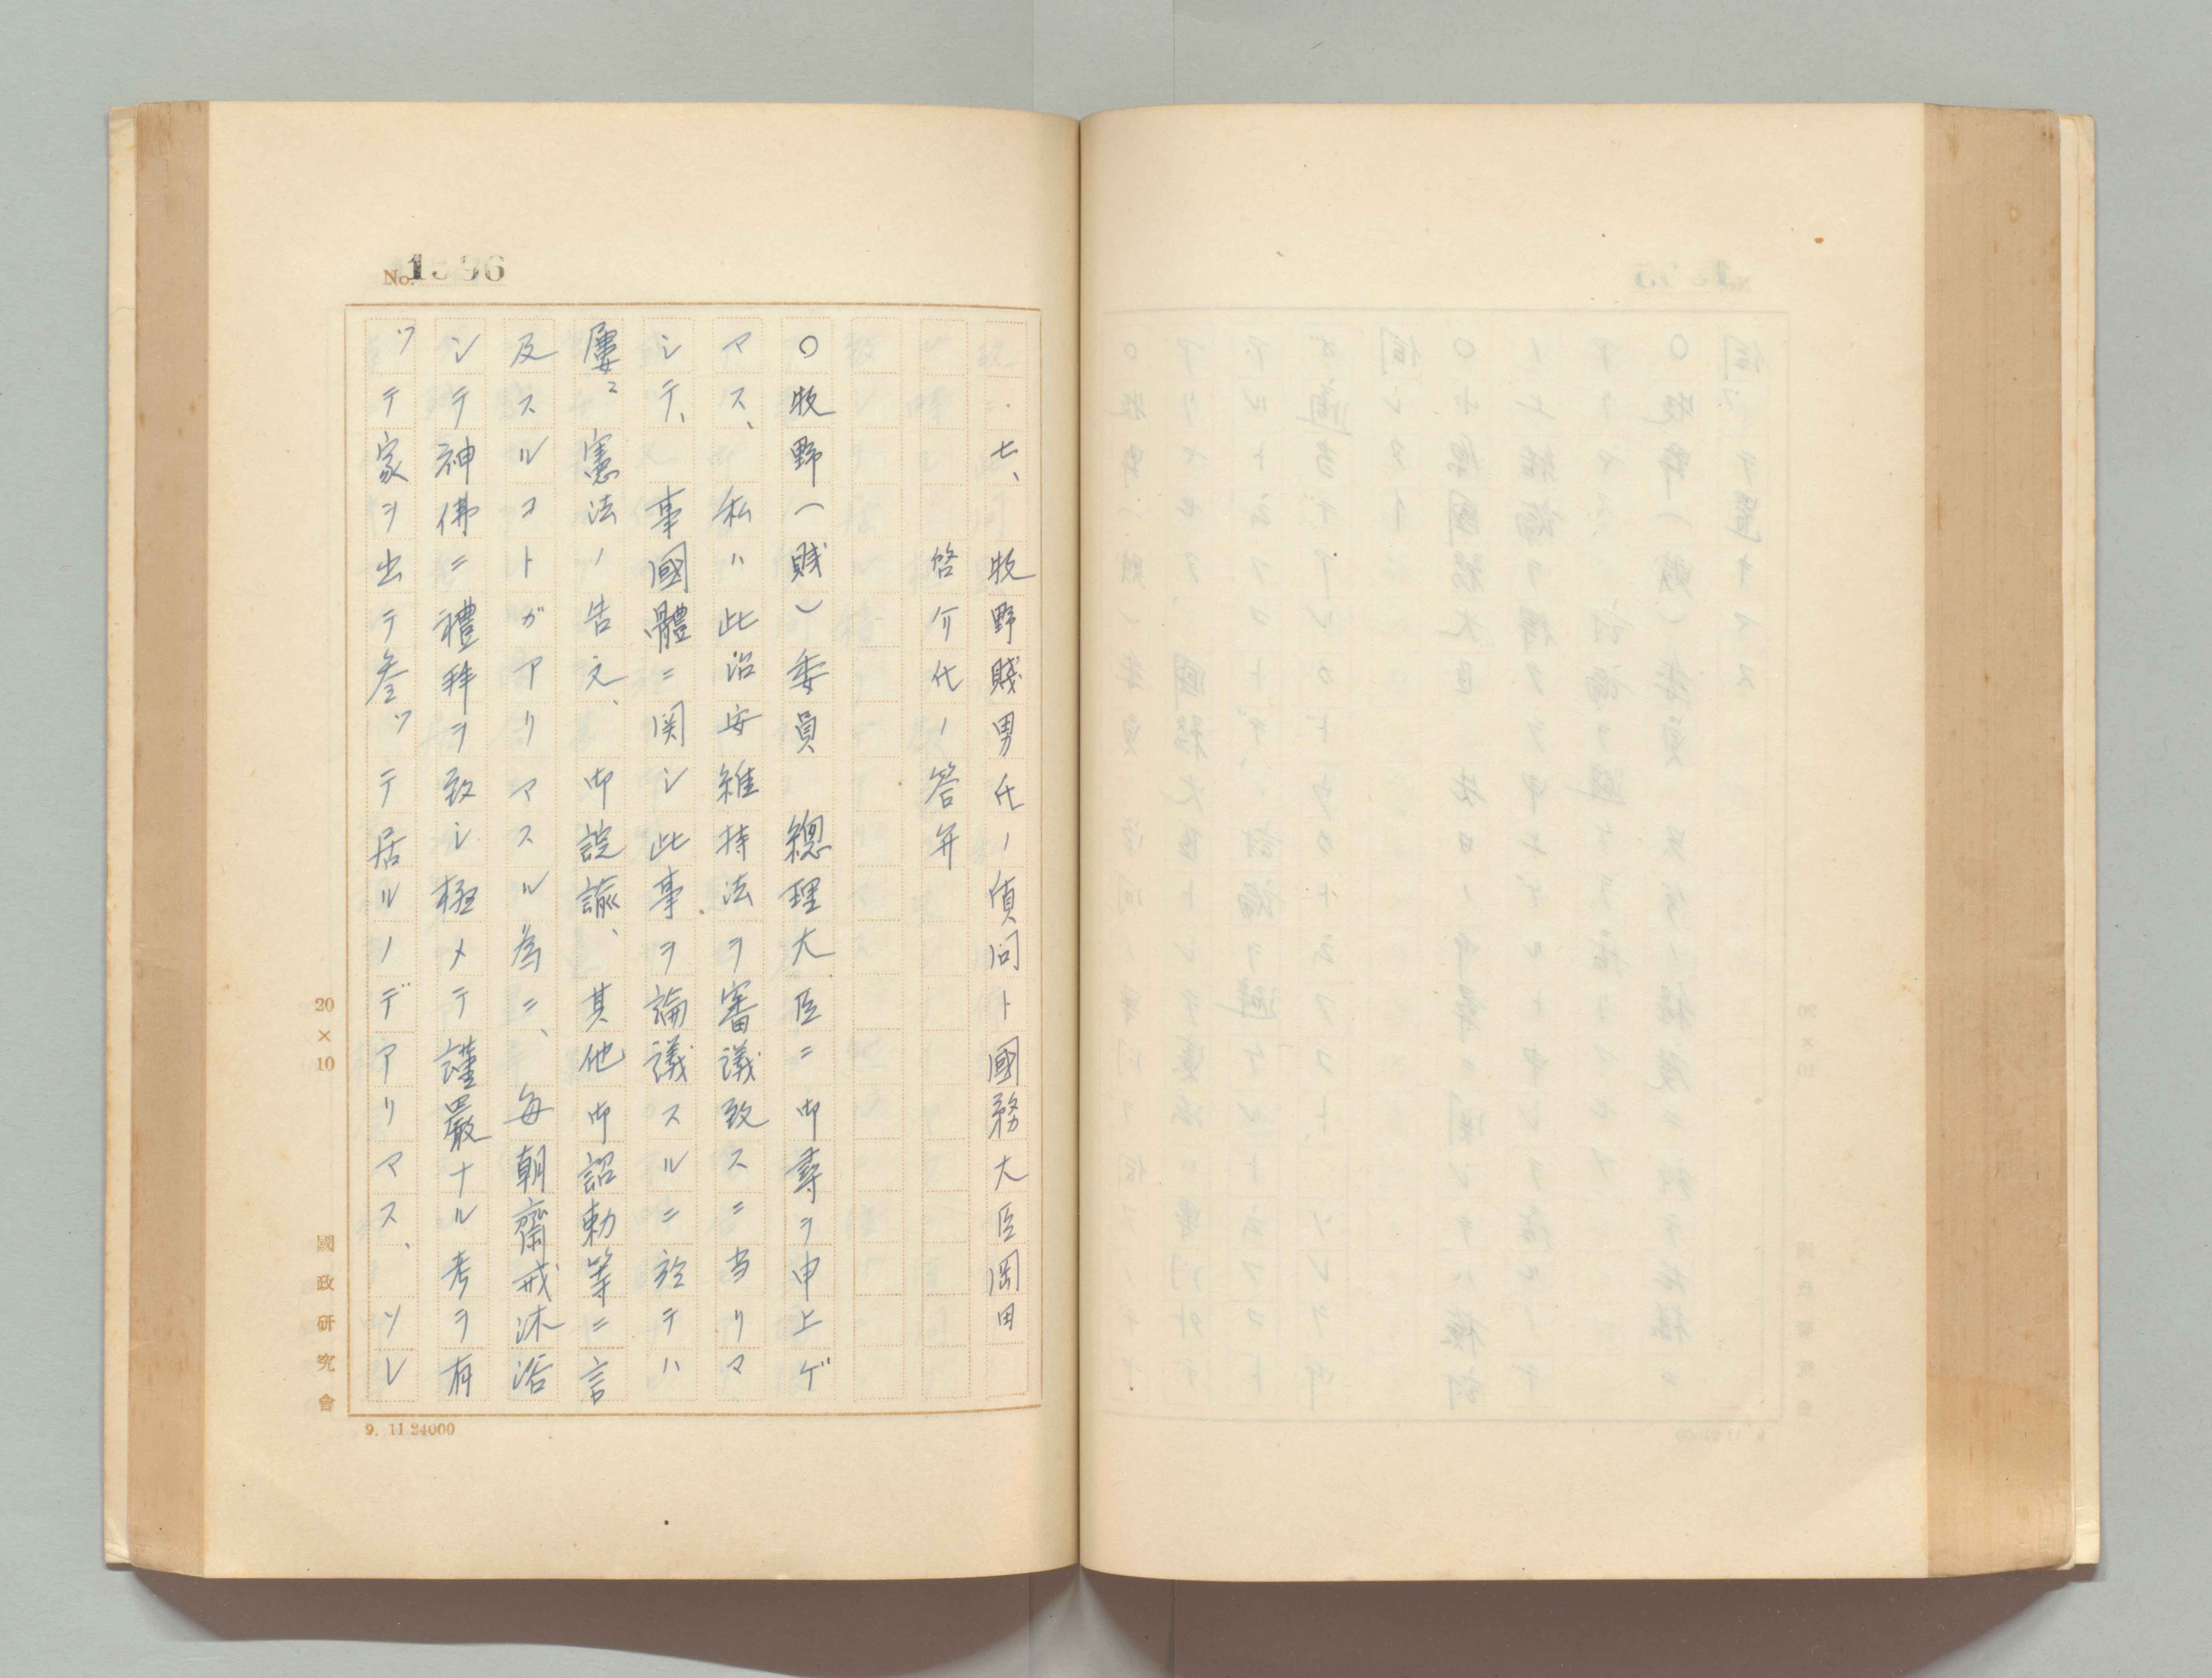 No. 1596
七、牧野賤男氏ノ質問ト國務大臣岡田
啓介氏ノ答弁
○牧野(賤)委員 總理大臣ニ御尋ヲ申上ゲ
マス、私ハ此治安維持法ヲ審議致スニ当リマ
シテ、事國體ニ関シ此事ヲ論議スルニ於テハ
屢〻憲法ノ告文、御諚諭、其他御詔勅等ニ言
及スルコトガアリマスル為ニ、毎朝齋戒沐浴
シテ神佛ニ禮拜ヲ致シ極メテ謹嚴ナル考ヲ有
ツテ家ヲ出テ參ツテ居ルノデアリマス、ソレ
20×10
國政研究會
9. 11 24000